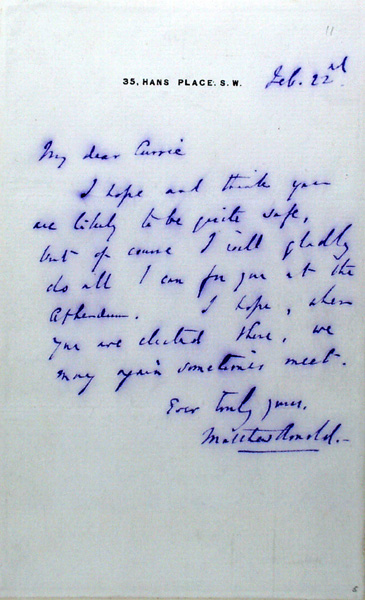 11
35, HANS PLACE. S. W.
Feb. 22nd.
My dear Currie
I hope and think you
are likely to be quite safe,
but of course I will gladly
do all I can for you at the
Athenæum. I hope, when
you are elected there, we
may again sometimes meet.
Ever truly yours,
Matthew Arnold.-
6